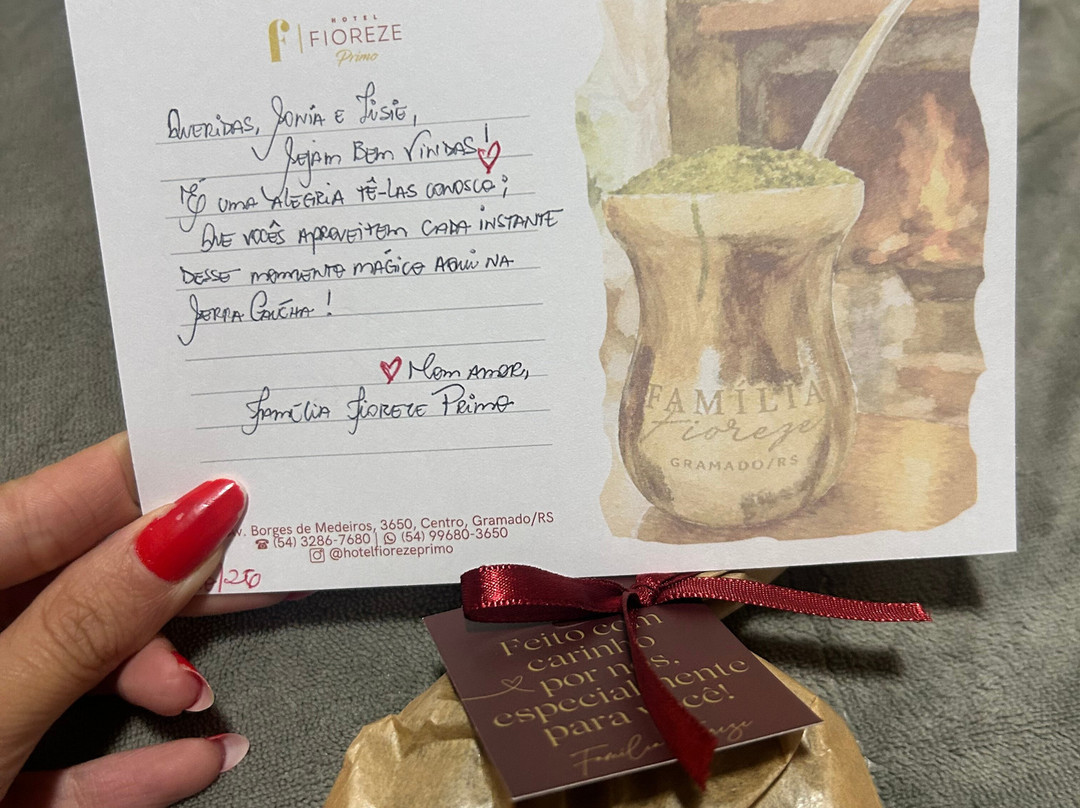 HOTEL
f | FIOREZE
Primo
QUERIDAS, SONIA E SUSIE,
SEJAM BEM VINDAS!
É UMA ALEGRIA TÊ-LAS CONOSCO;
QUE VOCÊS APROVEITEM CADA INSTANTE
DESSE MOMMENTO MÁGICO AQUI NA
SERRA GAÚCHA!
COM AMOR,
FAMÍLIA FIOREZE PRIMO
Av. Borges de Medeiros, 3650, Centro, Gramado/RS
(54) 3286-7680 | (54) 99680-3650
@hotelfiorezeprimo
/250
FAMÍLIA
Fioreze
GRAMADO/RS
Feito com
carinho
por nós.
especialmente
para você!
Família Fioreze